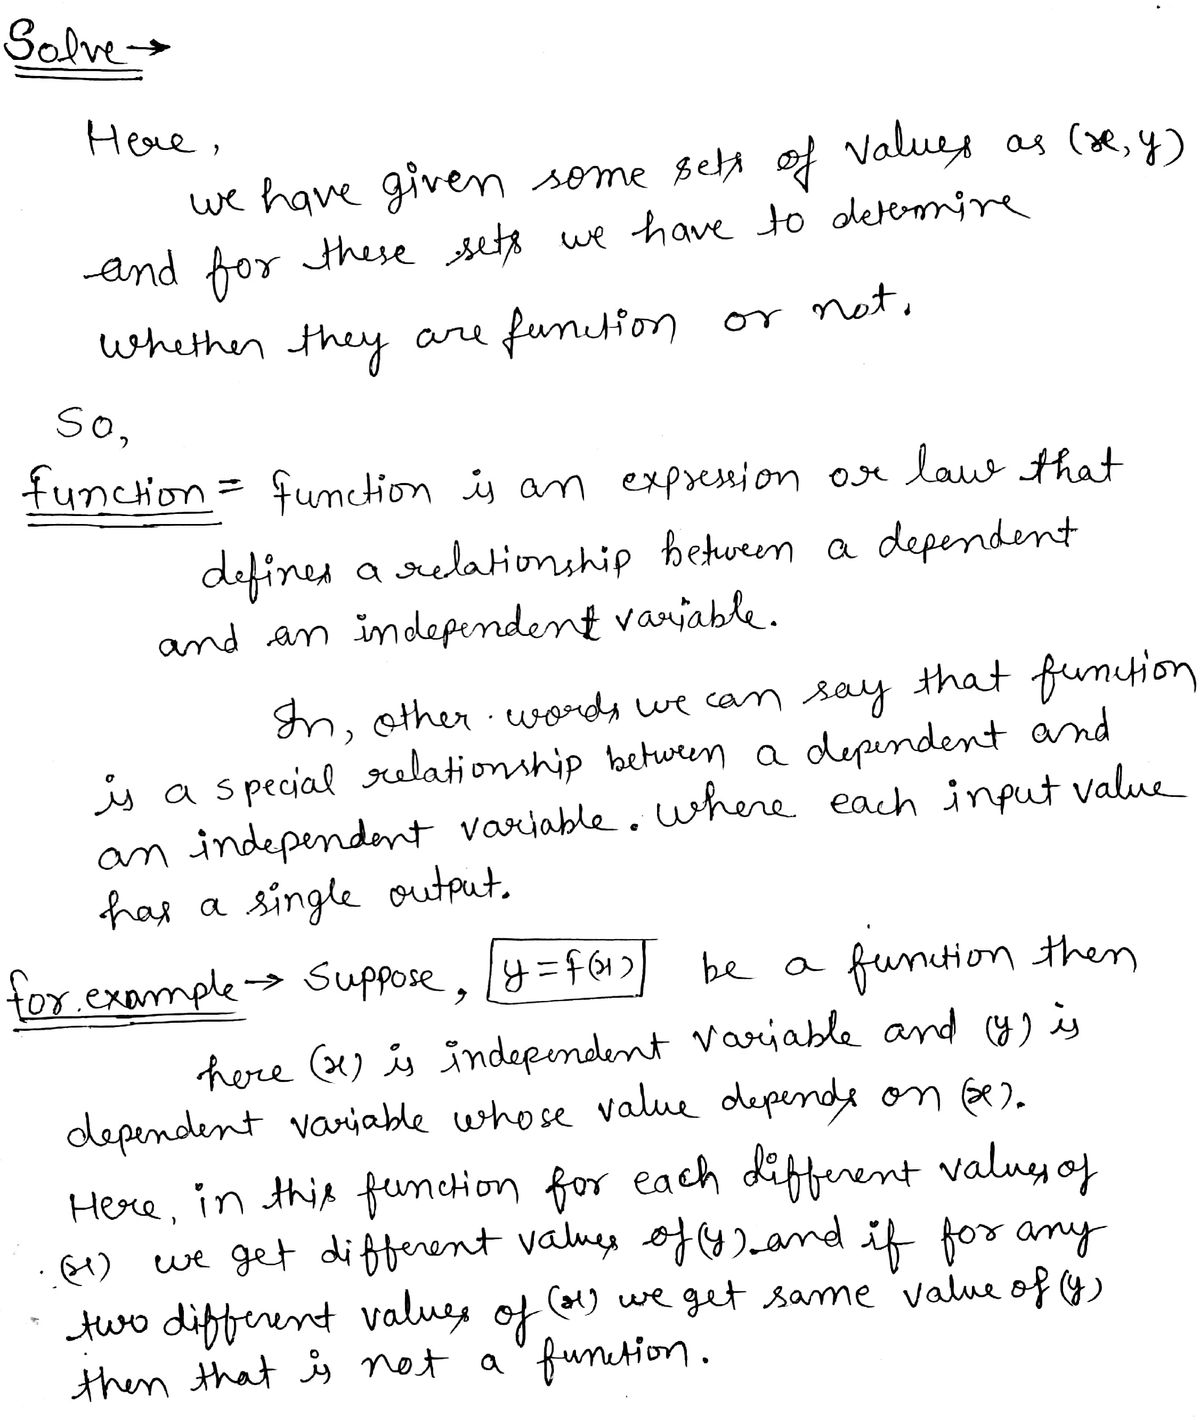 Solve →
Here,
we have given some sets of values as (x, y)
and for these sets we have to determine
whether they are function or not.
So,
function = function is an expression or law that
defines a relationship between a dependent
and an independent variable.
In, other words we can say that function
is a special relationship between a dependent and
an independent variable. Where each input value
has a single output.
for example → Suppose, y = f(x) be a function then
here (x) is independent variable and (y) is
dependent variable whose value depends on (x).
Here, in this function for each different values of
(x) we get different values of (y) and if for any
two different values of (x) we get same value of (y)
then that is not a function.